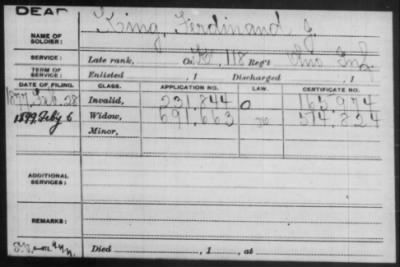 DEAD
NAME OF SOLDIER: King, Ferdinand J.
SERVICE: Late rank, Co. 118 Reg't Ohio Inf
TERM OF SERVICE: Enlisted , 1 Discharged , 1
DATE OF FILING. CLASS. APPLICATION NO. LAW. CERTIFICATE NO.
1877, Feb. 28 Invalid, 231.844 O 165.974
1899, Feby 6 Widow, 691.663 514.824
Minor,
ADDITIONAL SERVICES:
REMARKS:
Died , 1 , at